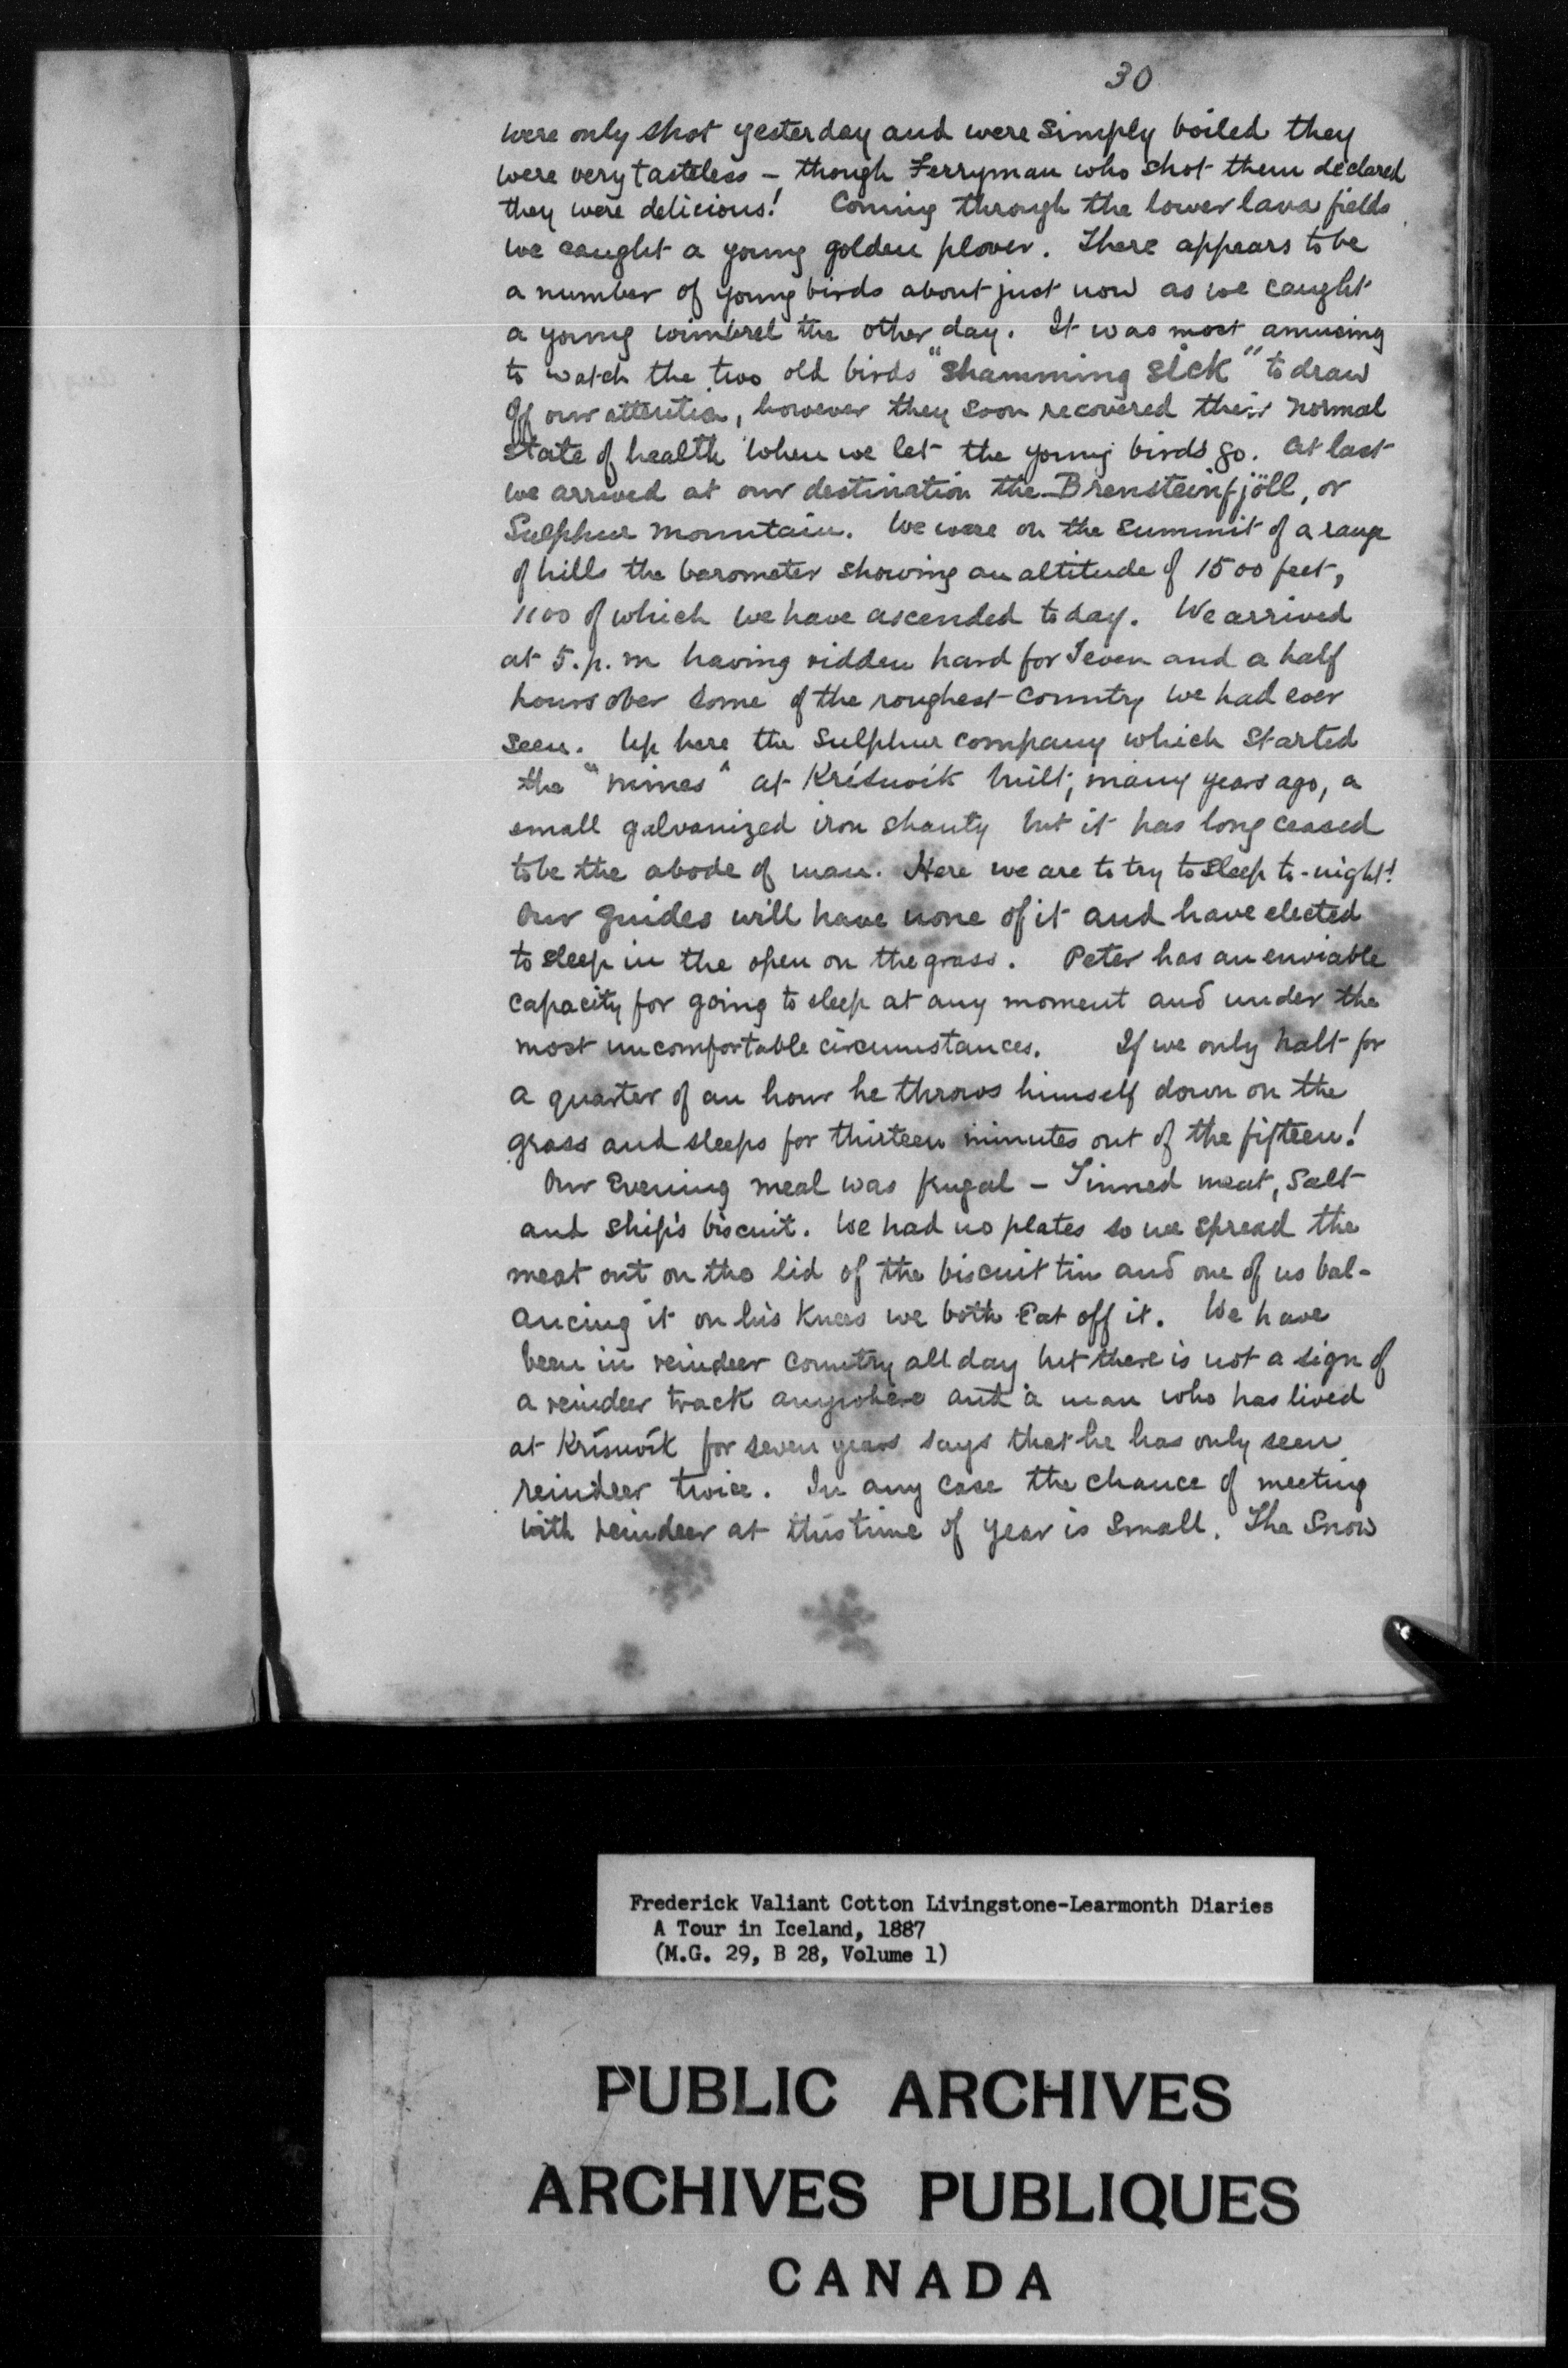 30
were only shot yesterday and were simply boiled they
were very tasteless – though Ferryman who shot them declared
they were delicious! Coming through the lower lava fields
we caught a young golden plover. There appears to be
a number of young birds about just now as we caught
a young wimbrel the other day. It was most amusing
to watch the two old birds "shamming sick" to draw
off our attention, however they soon recovered their normal
state of health when we let the young birds go. At last
we arrived at our destination the Brensteinfjöll, or
Sulphur Mountain. We were on the summit of a range
of hills the barometer showing an altitude of 1500 feet,
1100 of which we have ascended today. We arrived
at 5.p.m having ridden hard for seven and a half
hours over some of the roughest country we had ever
seen. Up here the Sulphur company which started
the "mines" at Krísuvík built, many years ago, a
small galvanized iron shanty but it has long ceased
to be the abode of man. Here we are to try to sleep to-night!
Our guides will have none of it and have elected
to sleep in the open on the grass. Peter has an enviable
capacity for going to sleep at any moment and under the
most uncomfortable circumstances. If we only halt for
a quarter of an hour he throws himself down on the
grass and sleeps for thirteen minutes out of the fifteen!
Our Evening meal was frugal – Tinned meat, Salt
and ship's biscuit. We had no plates so we spread the
meat out on the lid of the biscuit tin and one of us bal-
ancing it on his knees we both eat off it. We have
been in reindeer country all day but there is not a sign of
a reindeer track anywhere and a man who has lived
at Krísuvík for seven years says that he has only seen
reindeer twice. In any case the chance of meeting
with reindeer at this time of year is small. The Snow
Frederick Valiant Cotton Livingstone-Learmonth Diaries
A Tour in Iceland, 1887
(M.G. 29, B 28, Volume 1)
PUBLIC ARCHIVES
ARCHIVES PUBLIQUES
CANADA